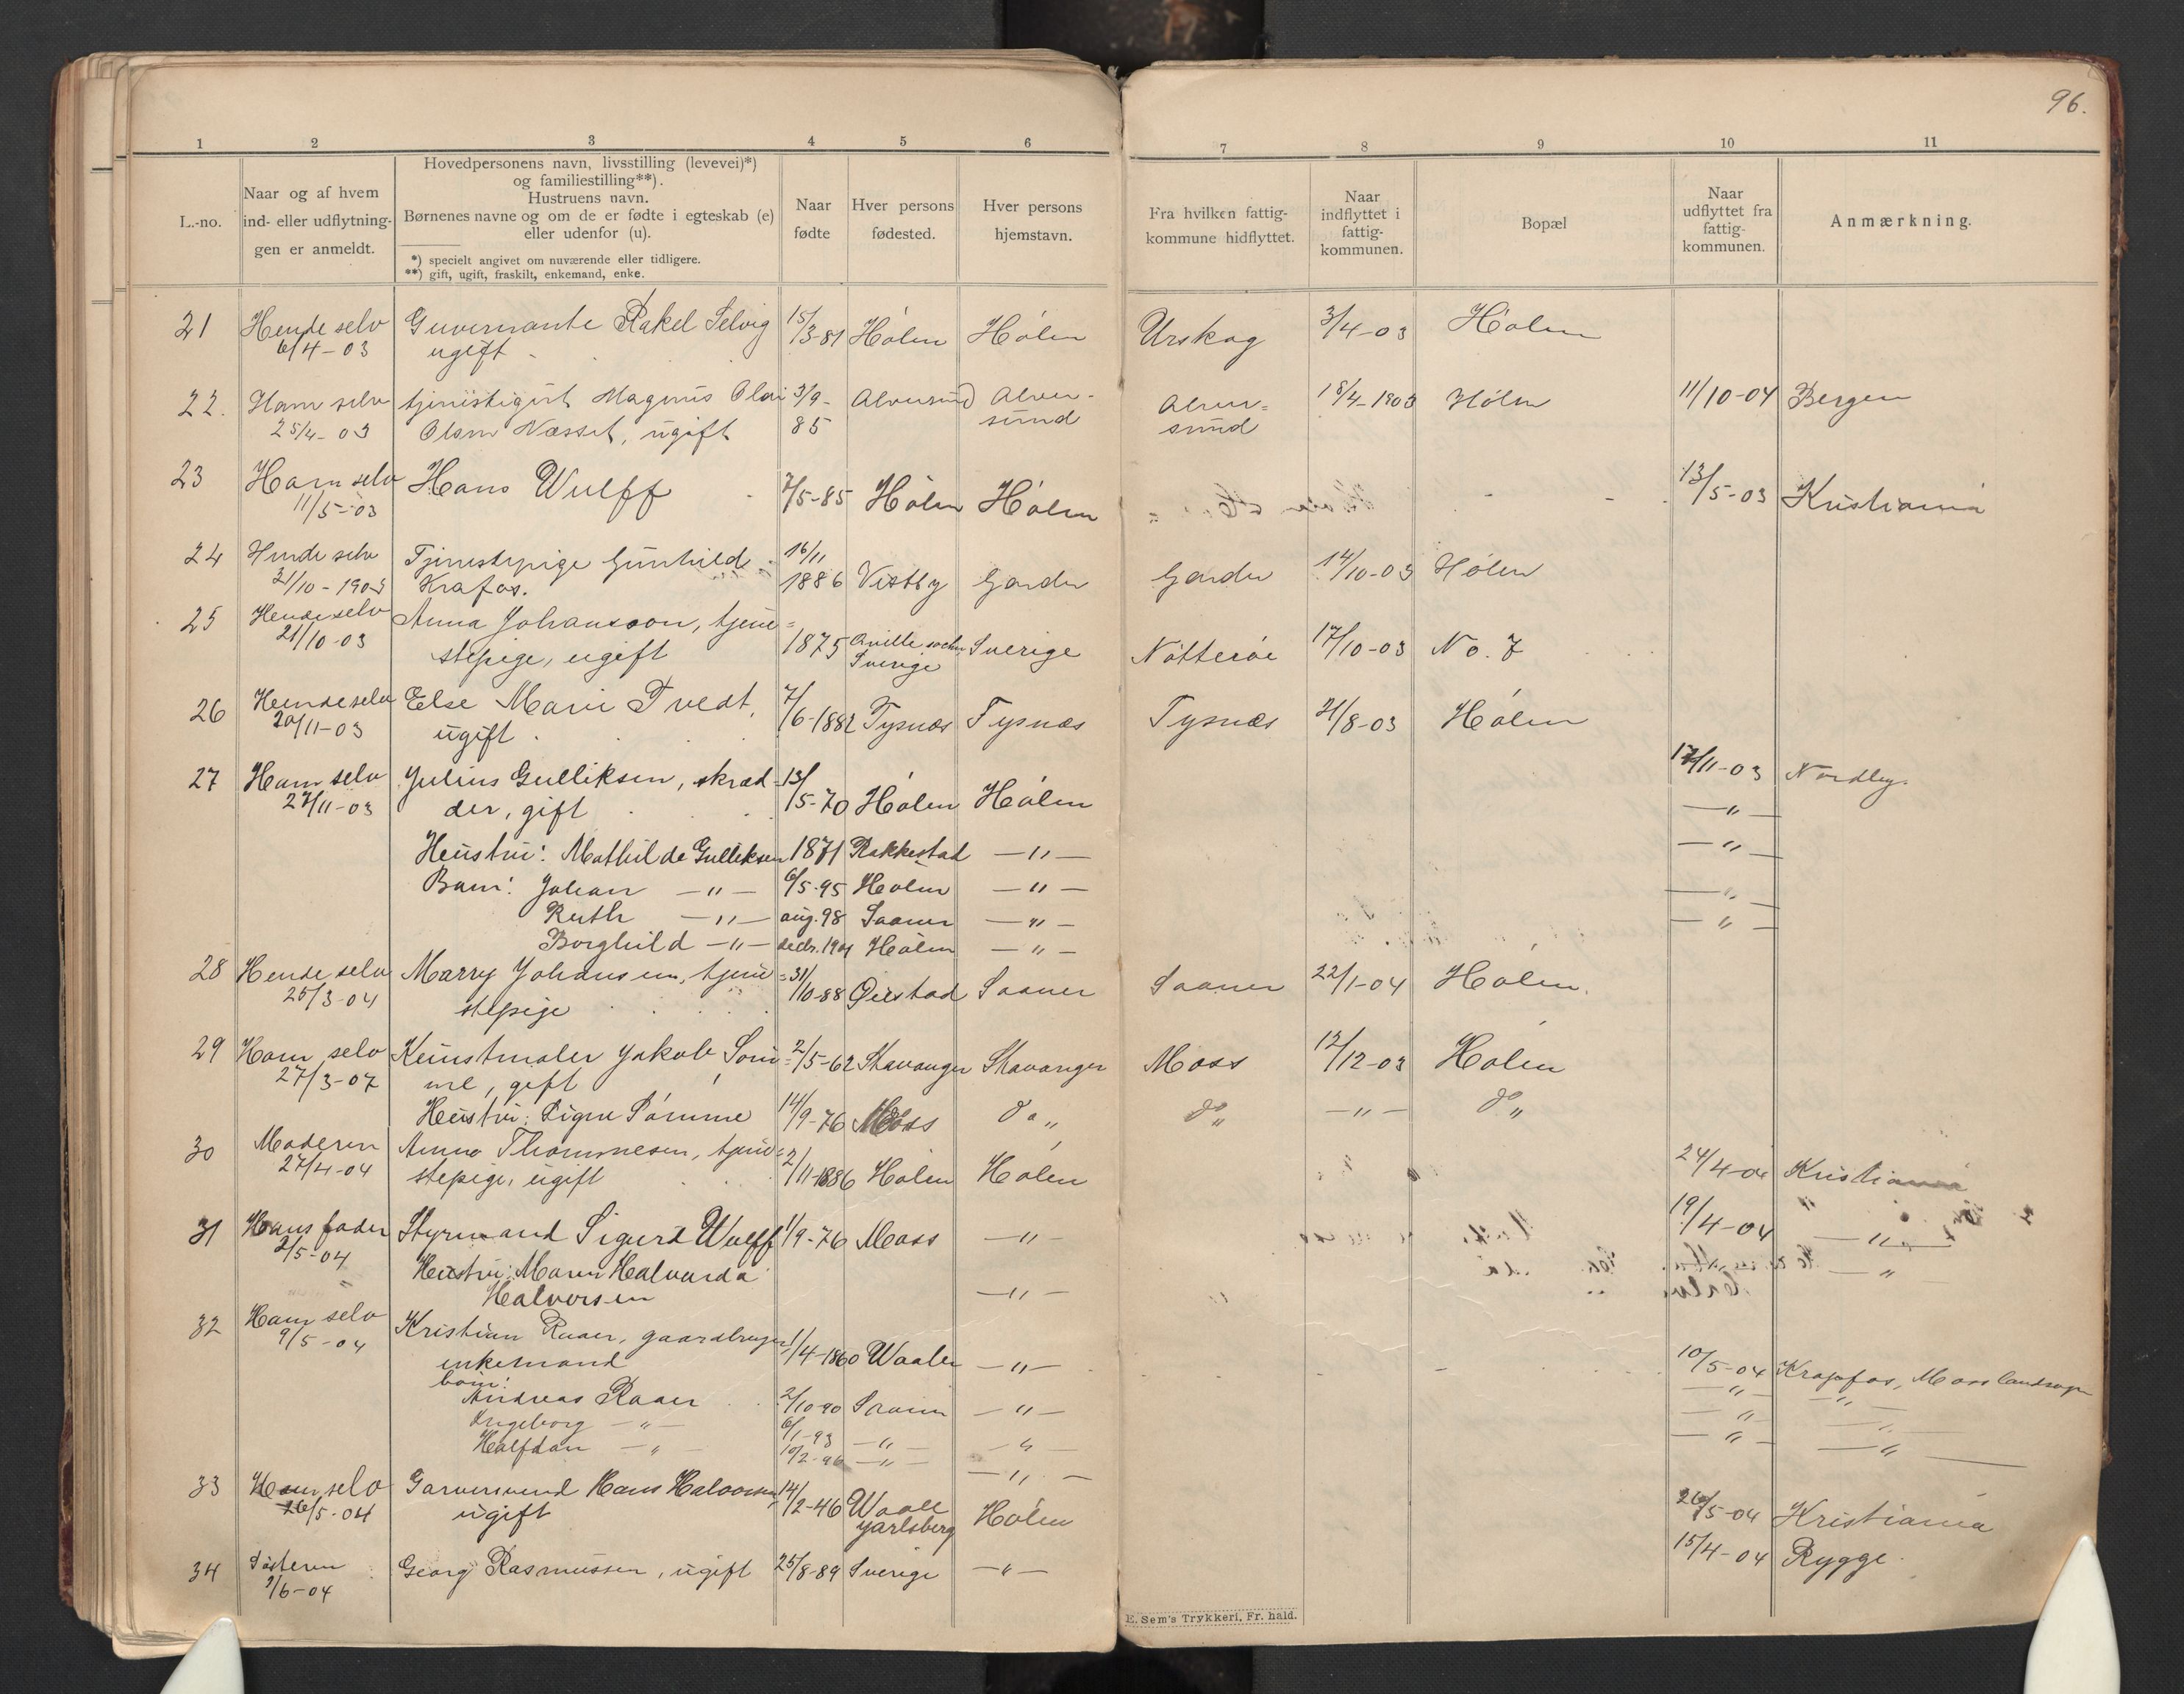 96.
1 2 3 4 5 6 7 8 9 10 11
L.-no.
Naar og af hvem
ind- eller udflytnin-
gen er anmeldt.
Hovedpersonens navn, livsstilling (levevei)*)
og familiestilling**).
Hustruens navn.
Børnenes navne og om de er fødte i egteskab (e)
eller udenfor (u).
*) specielt angivet om nuværende eller tidligere.
**) gift, ugift, fraskilt, enkemand, enke.
Naar
fødte
Hver persons
fødested.
Hver persons
hjemstavn.
Fra hvilken fattig-
kommune hidflyttet.
Naar
indflyttet i
fattig-
kommunen.
Bopæl
Naar
udflyttet fra
fattig-
kommunen.
Anmærkning.
21 Hende selv Guvernante Rakel Selvig 15/3-81 Hólen Hólen Urskog 3/4-03 Hólen
6/4-03 ugift
22. Ham selv tjenestegut Magnus Olai 3/9- Alversund Alver- Alver= 18/4-1903 Hólen 11/10-04 Bergen
25/4-03 Olsen Næsset, ugift 85 sund sund
23 Ham selv Hans Wulff 7/5-85 Hólen Hólen 13/5-03 Kristiania
11/5-03
24 Hende selv Tjenestepige Gunhild 16/11
21/10-1903 Krafos. 1886 Vestby Garder Garder 14/10-03 Hólen
25 Hende selv Anna Johansson, tjene=
21/10-03 stepige, ugift 1875 Qville sochn Sverige Nótteróe 17/10-03 No. 7
Sverige
26 Hende selv Else Marie Tvedt, 7/6-1882 Tysnæs Tysnæs Tysnæs 21/8-03 Hólen
20/11-03 ugift
27 Ham selv Julius Gulliksen, skræd- 13/5-70 Hólen Hólen 17/11-03 Nordby.
27/11-03 der, gift —"—
Hustru: Mathilde Gulliksen 1871 Rakkestad —"— —"—
Barn: Johan —"— 6/5-95 Hólen —"— —"—
Ruth —"— aug. 98 Saaner —"— —"—
Borghild —"— decbr. 1901 Hólen —"—
28 Hende selv Marry Johansen, tjene= 31/10-88 Øiestad Saaner Saaner 22/1-04 Hólen.
25/3-04 stepige
29 Ham selv Kunstmaler Jakob Sóm= 2/5-62 Stavanger Stavanger Moss 12/12-03 Hólen
27/3-07 me, gift
Hustru: Signe Sómme 14/9-76 Moss do„ do„ —"— do„
30 Moderen Anna Thommesen, tjene= 2/11-1886 Hólen Hólen 24/4-04 Kristiania
27/4-04 stepige, ugift
31 Hans fader Styrmand Sigurd Wulff 1/9-76 Moss —"— 19/4-04 —"—
2/5-04 Hustru: Maren Halvarda —"—
Halvorsen —"—
32 Ham selv Kristian Raaer, gaardbruger 1/4-1860 Waaler —"— 10/5-04 Krapfos, Moss landsogn
9/5-04 enkemand
børn:
Andreas Raaer 2/10-90 Saaner —"— —"— —"—
Ingeborg —"— 6/1-93 —"— —"— —"— —"—
Halfdan —"— 10/2-96 —"— —"— —"— —"—
33 Ham selv Garversvend Hans Halvorsen, 14/2-46 Waale Hólen 26/5-04 Kristiania
26/5-04 ugift Jarlsberg
34 Søsteren Georg Rasmussen, ugift 25/8-89 Sverige —"— 15/4-04 Rygge.
1/6-04
E. Sem's Trykkeri, Fr. hald.